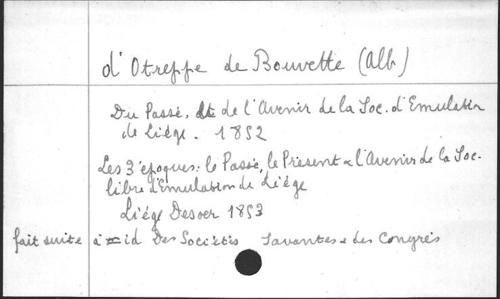 d'Otreppe de Bouvette (Alb)
Du Passé, de l'Avenir de la Soc. d'Emulation
de Liége. 1852
Les 3 époques: le Passé, le Présent & l'Avenir de la Soc.
libre d'Emulation de Liége
Liége Desoer 1853
fait suite à = id Des Sociétés Savantes & des Congrès